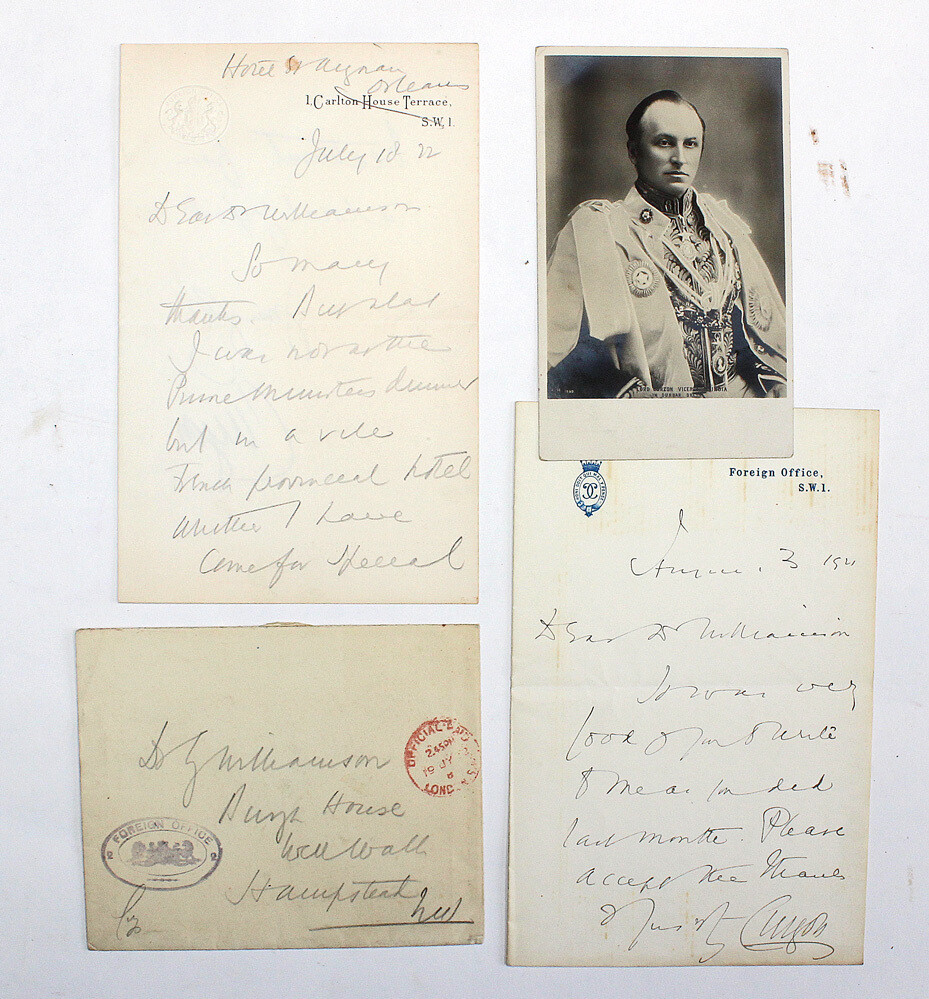 Hotel St Aignan
Orleans
1, Carlton House Terrace,
S.W.1.
July 18 22
Dear Dr Williamson
So many
thanks. But alas
I was not at the
Prime Ministers dinner
but in a vile
French provincial hotel
whither I have
come for special
LORD CURZON VICEROY INDIA
IN DURBAR
Foreign Office,
S.W.1.
August 3 1921
Dear Dr Williamson
It was very
good of you to write
to me as you did
last month. Please
accept the thanks
of yours
Curzon
Dr G Williamson
Burgh House
Well Walk
Hampstead
NW
OFFICIAL PAID
19 JY
LONDON
FOREIGN OFFICE
2 2